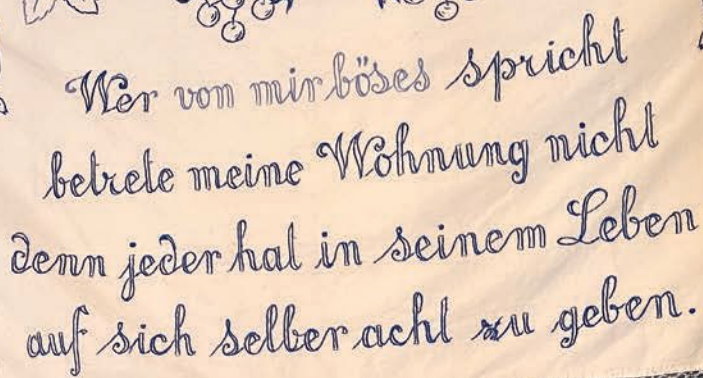 Wer von mir böses spricht
betrete meine Wohnung nicht
denn jeder hat in seinem Leben
auf sich selber acht zu geben.